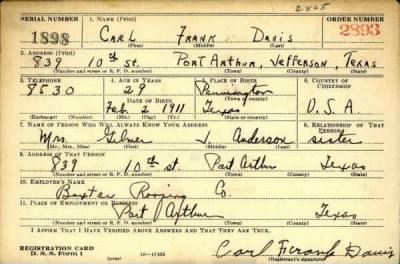 2865
SERIAL NUMBER 1. NAME (Print) ORDER NUMBER
1898 CARL FRANK DAVIS 2893
(First) (Middle) (Last)
2. ADDRESS (Print)
839 10th St. PORT ARTHUR, JEFFERSON, TEXAS
(Number and street or R. F. D. number) (Town) (County) (State)
3. TELEPHONE 4. AGE IN YEARS 5. PLACE OF BIRTH 6. COUNTRY OF CITIZENSHIP
8530 29 Pennington
DATE OF BIRTH (Town or county)
Feb 2 1911 Texas U.S.A.
(Exchange) (Number) (Mo.) (Day) (Yr.) (State or country)
7. NAME OF PERSON WHO WILL ALWAYS KNOW YOUR ADDRESS 8. RELATIONSHIP OF THAT PERSON
Mrs. J Anderson sister
(Mr., Mrs., Miss) (First) (Middle) (Last)
9. ADDRESS OF THAT PERSON
839 10th st. Port Arthur Texas
(Number and street or R. F. D. number) (Town) (County) (State)
10. EMPLOYER'S NAME
Baxter Roofing Co
11. PLACE OF EMPLOYMENT OR BUSINESS
Port Arthur Texas
(Number and street or R. F. D. number) (Town) (County) (State)
I AFFIRM THAT I HAVE VERIFIED ABOVE ANSWERS AND THAT THEY ARE TRUE.
REGISTRATION CARD
D. S. S. Form 1 (over) 16—17105 Carl Frank Davis
(Registrant's signature)